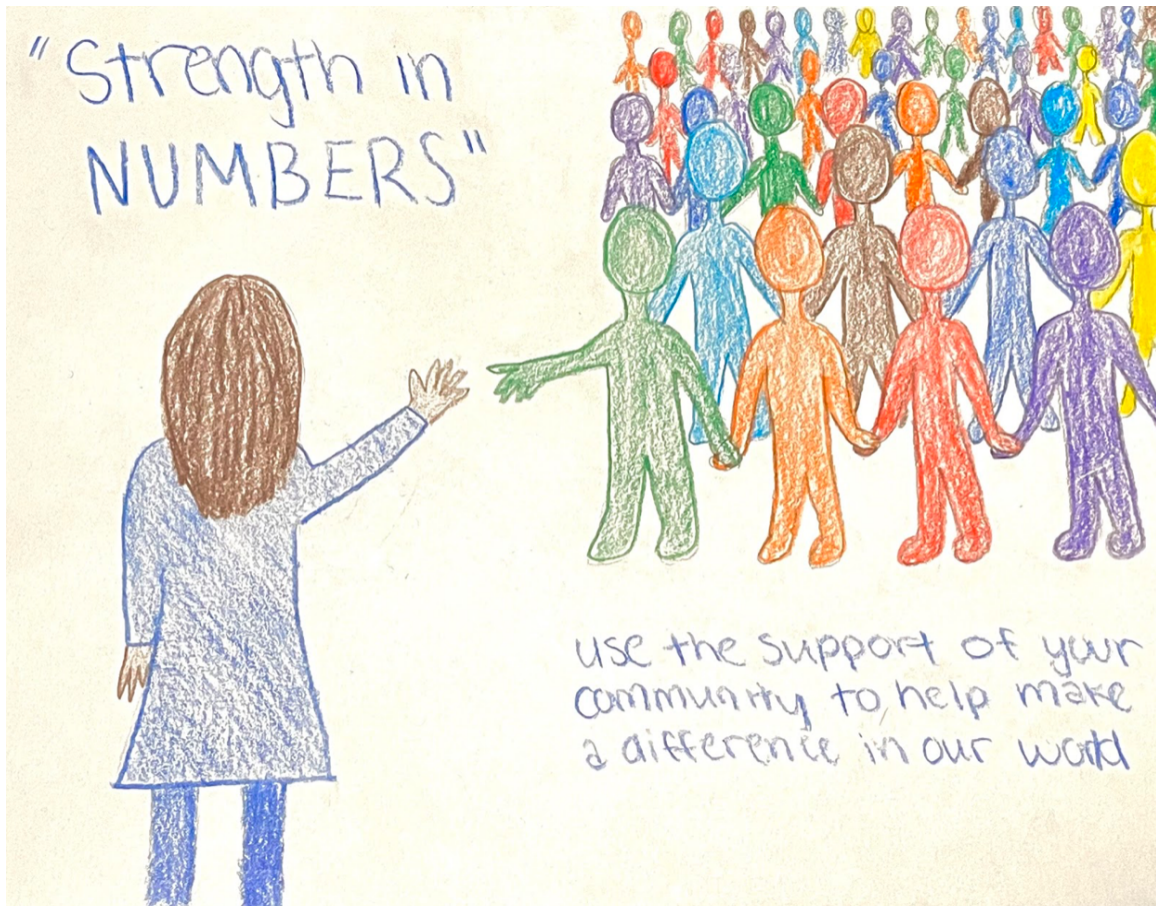 "Strength in
NUMBERS"
use the support of your
community to help make
a difference in our world